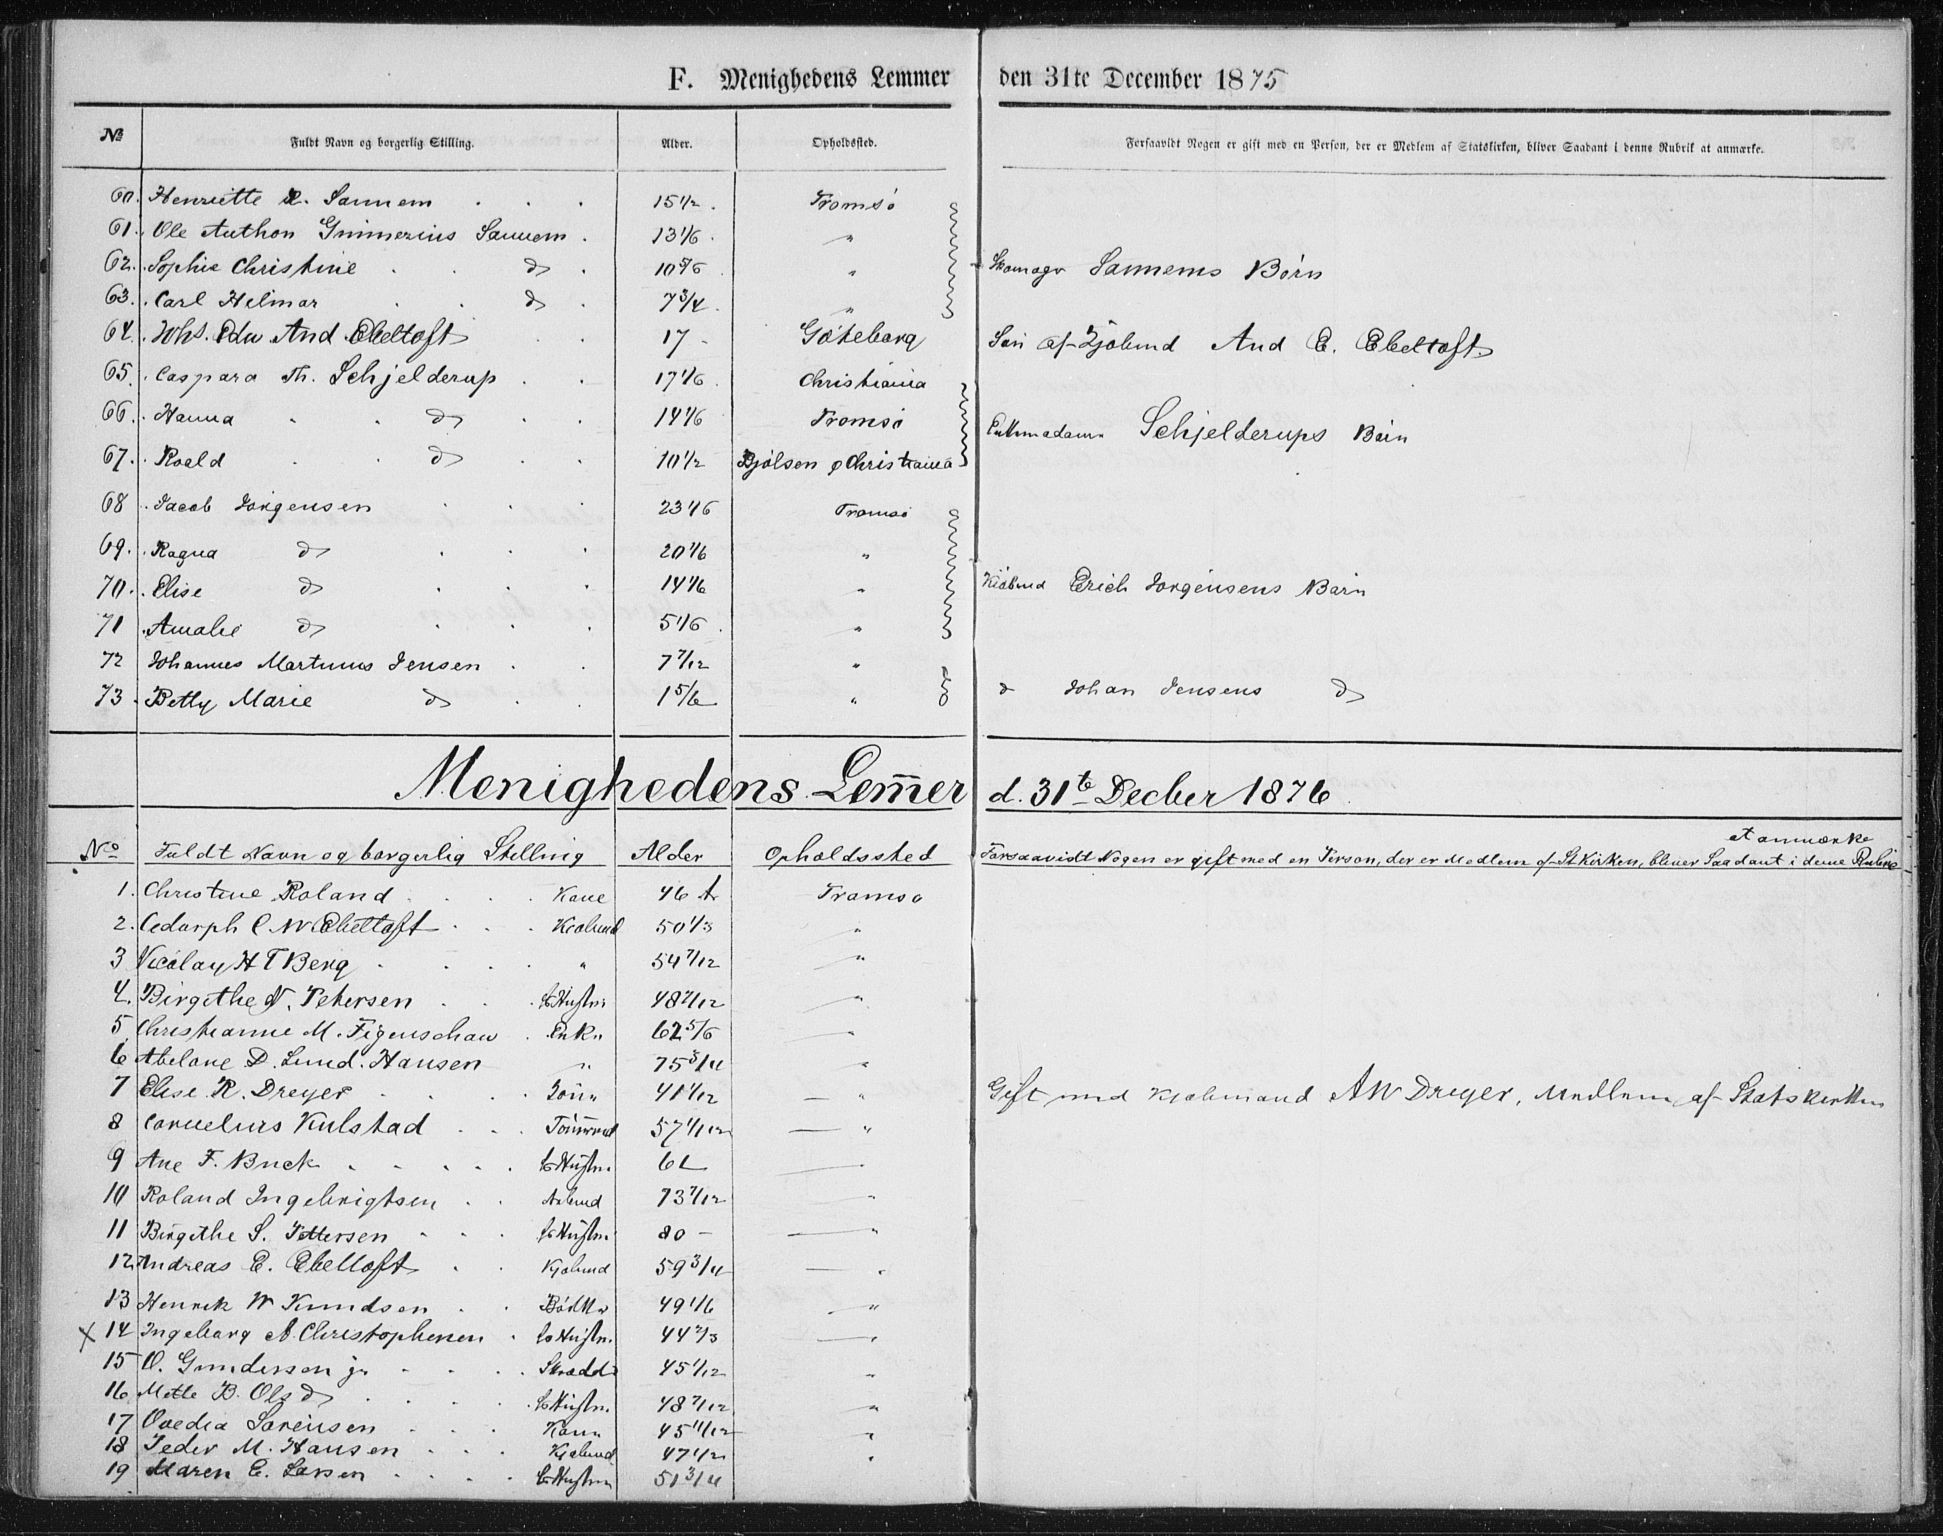 F. Menighedens Lemmer den 31te December 1875
№ Fuldt Navn og borgerlig Stilling. Alder. Opholdssted. Forsaavidt Nogen er gift med en Person, der er Medlem af Statskirken, bliver Saadant i denne Rubrik at anmærke.
60. Henriette R. Sannem 15 1/2. Tromsø
61. Ole Anthon Gunnerius Sannem. 13 1/6. "
62. Sophie Christine do. 10 5/6 " Skomager Sannems Børn
63. Carl Helmar do. 7 3/4. "
64. Joh. Edw. And. Ebeltoft 17 - Göteborg Søn af Kjøbmd And E. Ebeltoft
65. Caspara Th. Schjelderup 17 1/6. Christiania
66. Hanna do 14 1/6 Tromsø Enkemadam Schjelderups Børn
67. Roald do 10 1/2 Bjølsen p Christiania
68. Jacob Jørgensen 23 1/6 Tromsø
69. Ragna do 20 1/6 "
70. Elise do 14 1/6 " Kiøbmd Erich Jørgensens Børn
71 Amalie do 5 1/6. "
72 Johannes Martinus Jensen 7 7/12 "
73. Betty Marie do 1 5/6 " do Johan Jensens do
Menighedens Lem̄er d. 31te Decber 1876
No Fuldt Navn og borgerlig Stilling Alder Opholdssted Forsaavidt Nogen er gift med en Person, der er Medlem af St.Kirken, bliver Saadant i denne Rubrik
at anmærke
1. Christine Roland Kone 46 Tromsø
2. Cedorph C W Ebeltoft Kjøbmd 50 1/3 "
3 Nicolay H T Berg " 54 7/12 "
4. Birgithe N. Petersen Hustru 48 7/12 "
5 Christianne M. Figenschau Enke 62 5/6 "
6 Abelone D. Lund. Hansen " 75 3/4 "
7 Elise R. Dreyer 41 1/12 " Gift med Kjøbmand A W Dreyer, Medlem af Statskirken
8 Cornelius Kulstad Tømmrmd 57 11/12 "
9 Ane F. Buck Hustru 62 "
10 Roland Ingebrigtsen Arbmd 73 7/12 "
11 Birgithe S. Pettersen Hustru 80 - "
12 Andreas E. Ebeltoft Kjøbmd 59 3/4 "
13 Henrik W Knudsen Bødker 49 1/6 "
x 14 Ingeborg A. Christophersen Hustru. 44 2/3 "
15 O. Gundersen jr Skrædd 45 1/12 "
16 Mette B. Olsd Hustru. 48 7/12 "
17 Ovedia Sørensen Kone 45 11/12 "
18 Peder M. Hansen Kjøbmd 47 1/2 "
19 Maren E. Larsen Hustru 51 3/4